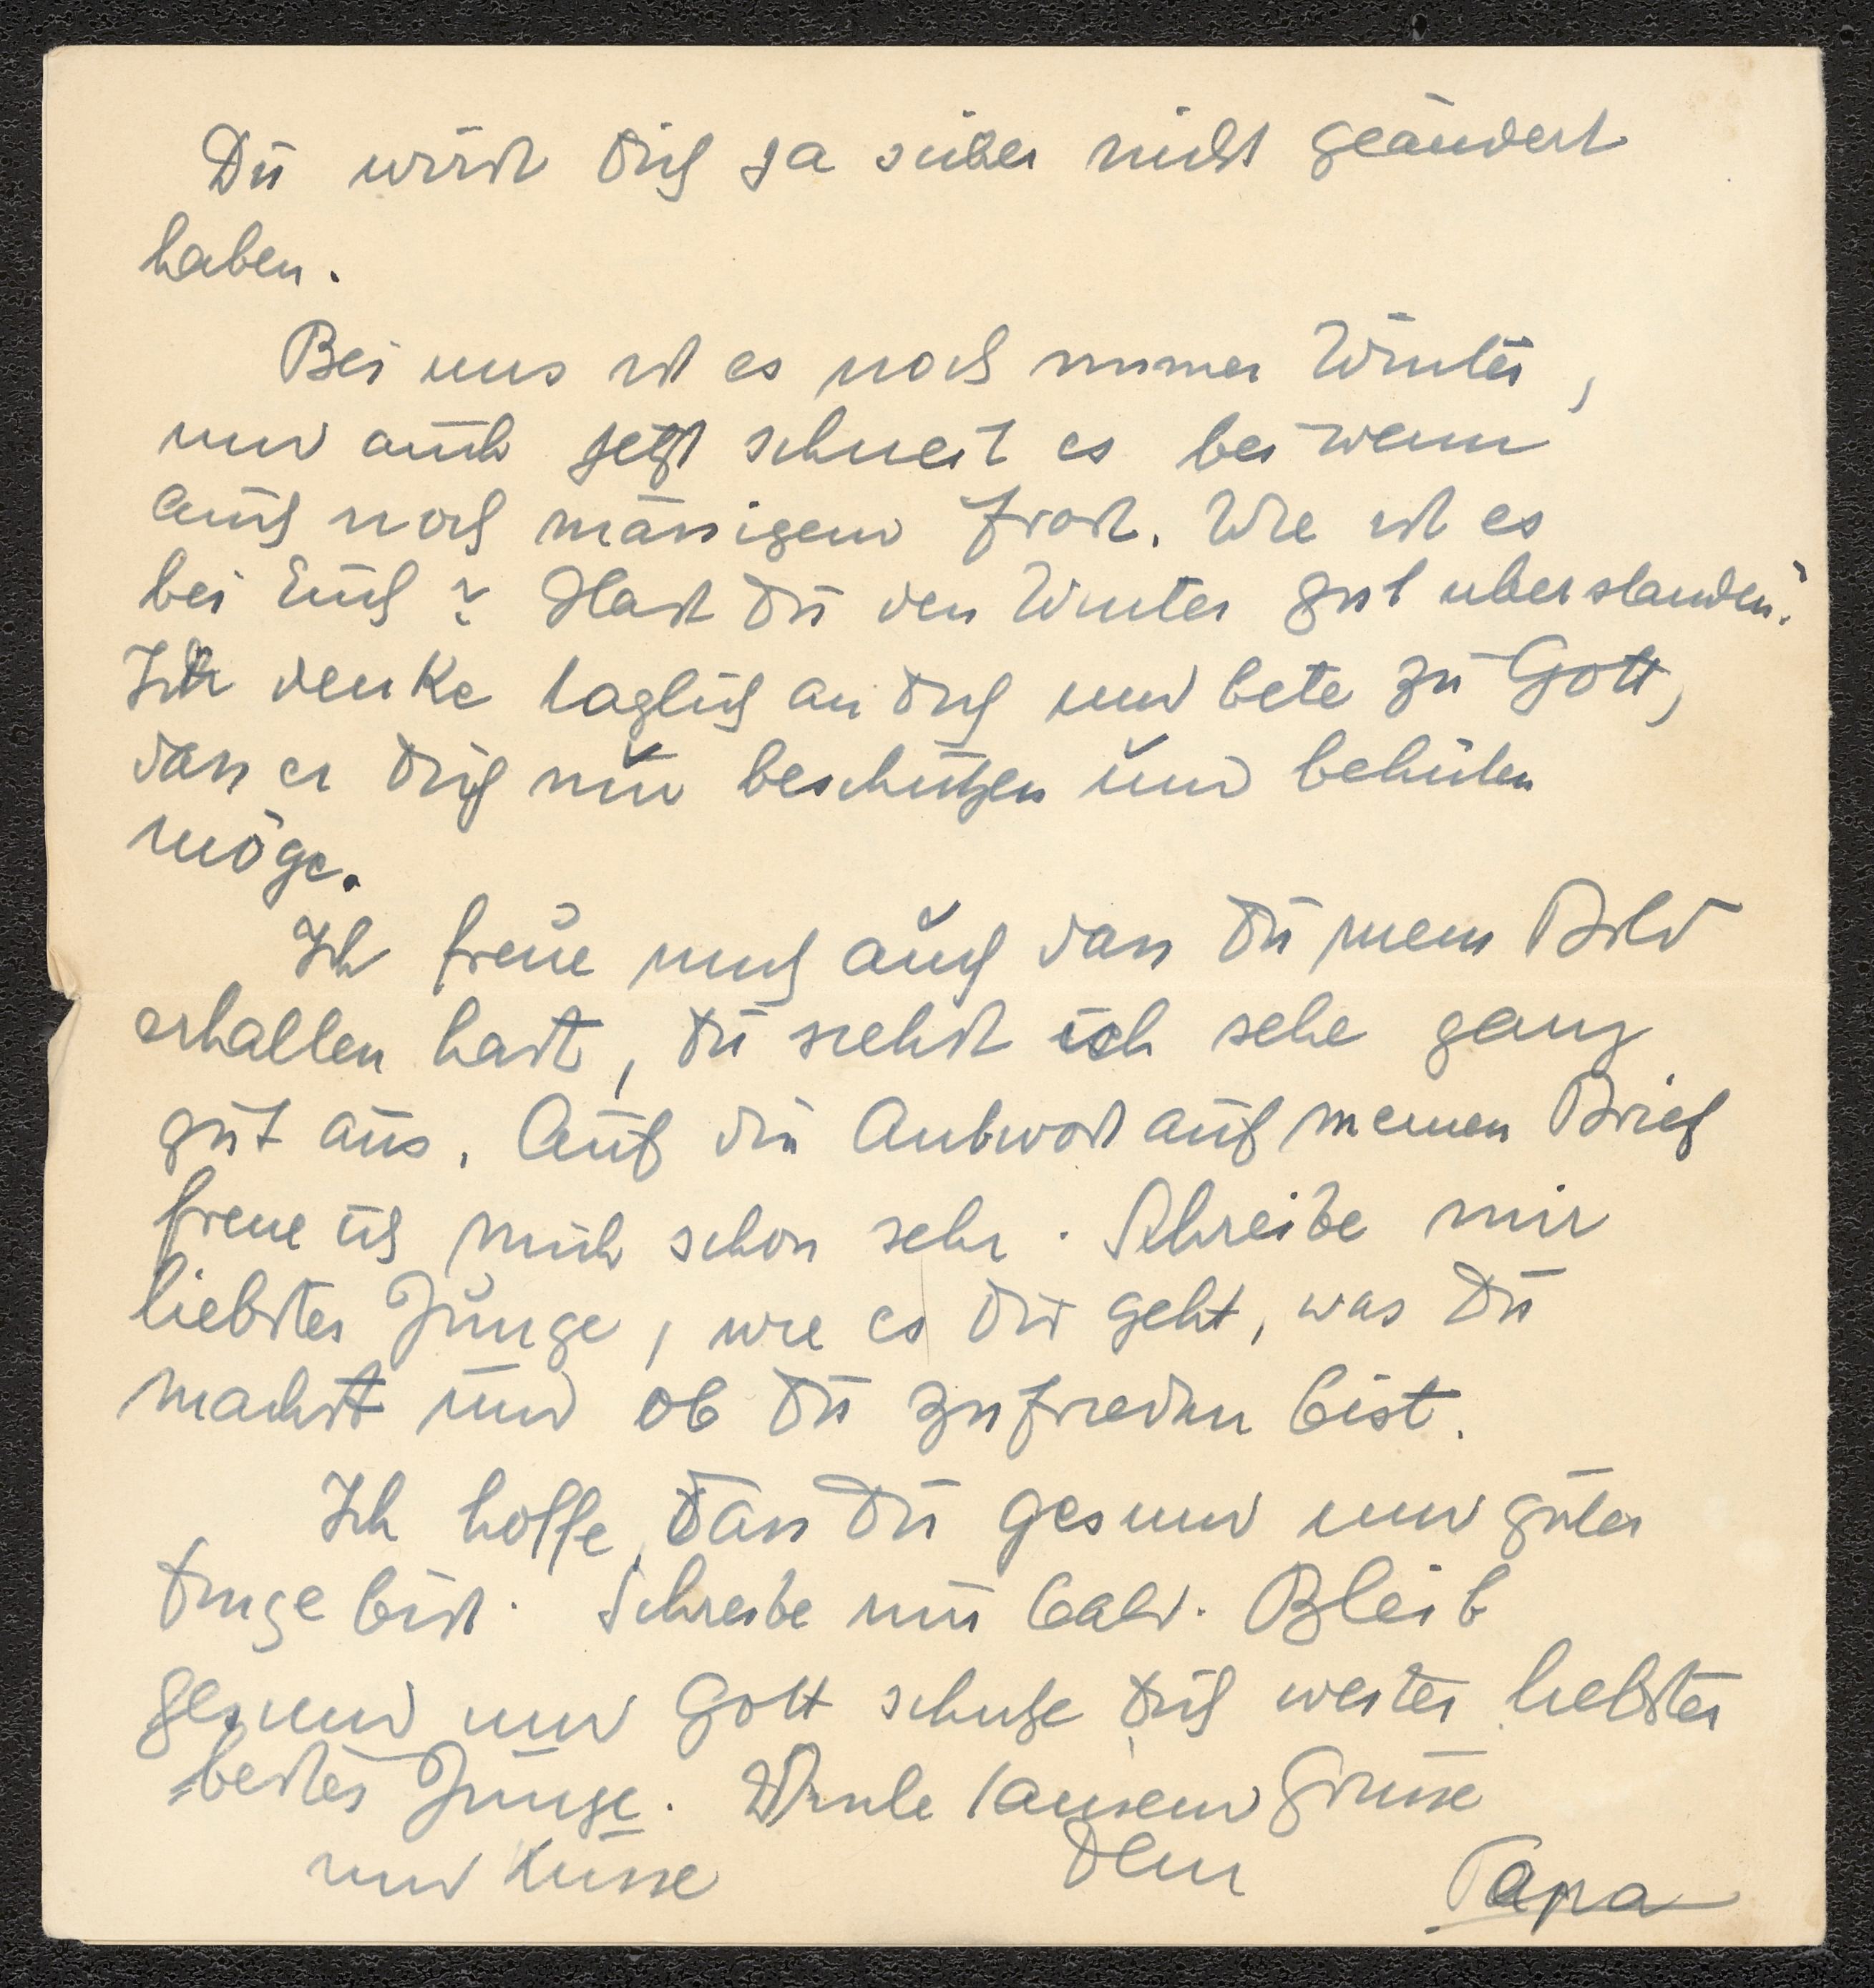 Du wirst Dich ja sicher nicht geändert
haben.
Bei uns ist es noch immer Winter,
und auch jetzt schneit es bei wenn
auch noch mässigem Frost. Wie ist es
bei Euch? Hast Du den Winter gut uberstanden?
Ich denke taglich an Dich und bete zu Gott,
dass er Dich nur beschützen und behüten
möge.
Ich freue mich auch dass Du mein Bild
erhalten hast, Du siehst ich sehe ganz
gut aus. Auf die Antwort auf meinen Brief
freue ich mich schon sehr. Schreibe mir
liebster Junge, wie es Dir geht, was Du
machst und ob Du zufrieden bist.
Ich hoffe, dass Du gesund und guter
Dinge bist. Schreibe mir bald. Bleib
gesund und Gott schutze Dich weiter liebster
bester Junge. Viele tausend Grüsse
und Küsse Dein Papa